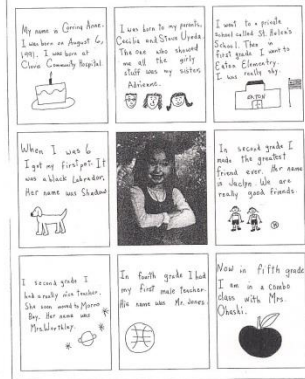 My name is Corrina Anne.
I was born on August 6,
1991. I was born at
Clovis Community Hospital.
I was born to my parents,
Cecilia and Steve Upeda.
The one who showed
me all the girly
stuff was my sister,
Adrienne.
I went to a private
school called St. Helen's
School. Then in
first grade I went to
Eaton Elementry.
I was really shy.
EATON
When I was 6
I got my first pet. It
was a black Labrador.
Her name was Shadow
In second grade I
made the greatest
friend ever. Her name
is Jaclyn. We are
really good friends.
I second grade I
had a really nice teacher.
She even moved to Morro
Bay. Her name was
Mrs. Worthley.
In fourth grade I had
my first male teacher.
His name was Mr. Jones.
Now in fifth grade
I am in a combo
class with Mrs.
Ohashi.